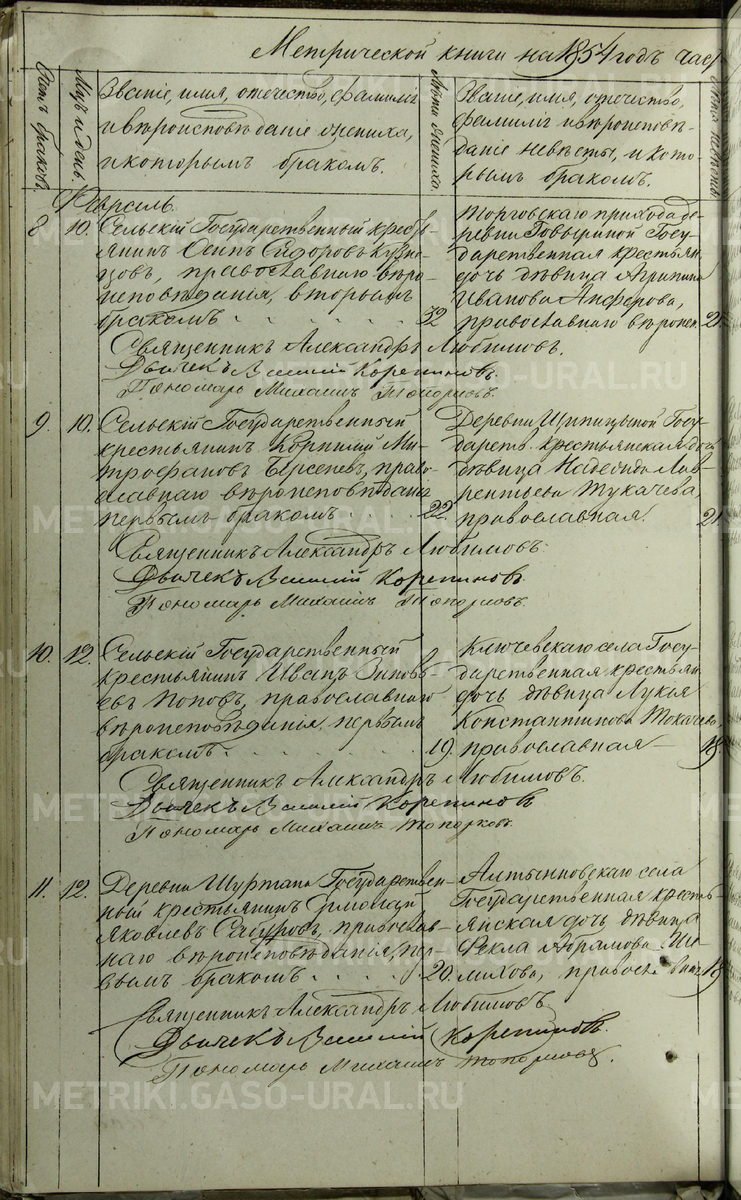 Метрической книги на 1854 годъ час
Счетъ браковъ.
Мѣс. и день.
Званіе, имя, отечество, фамилія
и вѣроисповѣданіе жениха,
и которымъ бракомъ.
Лѣта жениха.
Званіе, имя, отечество,
фамилія и вѣроисповѣ-
даніе невѣсты, и кото-
рымъ бракомъ.
Лѣта невѣсты
8 10. Сельскій Государственный кресть
янинъ Осипъ Сидоровъ Кузне-
цовъ, православнаго вѣро-
исповѣданія, вторымъ
бракомъ 32
Торговскаго прихода де-
ревни Государственная крестьян
дочь дѣвица Агрипина
Иванова Анферова,
православнаго вѣроисп. 21
Священникъ Александръ Любимовъ.
Дьячекъ Василій Корепиновъ.
Пономарь Михаилъ Топорковъ.
9. 10. Сельскій Государственный
крестьянинъ Корнилій Ми-
трофановъ Берсеневъ, право-
славнаго вѣроисповѣданія
первымъ бракомъ 22.
Деревни Шипицыной Госу-
дарств. крестьянская дочь
дѣвица Надежда Лав-
рентьева Тукачева,
православная 21
Священникъ Александръ Любимовъ.
Дьячекъ Василій Корепиновъ.
Пономарь Михаилъ Топорковъ.
10. 12. Сельскій Государственный
крестьянинъ Иванъ Зиновь
евъ Поповъ, православнаго
вѣроисповѣданія, первымъ
бракомъ 19.
Ключевскаго села Госу-
дарственная крестьян
дочь дѣвица Лукія
Константинова Токачева,
православная 18.
Священникъ Александръ Любимовъ.
Дьячекъ Василій Корепиновъ
Пономарь Михаилъ Топорковъ.
11. 12. Деревни Шуртана Государствен-
ный крестьянинъ Ермолай
Яковлевъ православ-
наго вѣроисповѣданія, пер-
вымъ бракомъ 20.
Алтынновскаго села
Государственная кресть-
янская дочь дѣвица
Фекла Абрамова
православная 18
Священникъ Александръ Любимовъ.
Дьячекъ Василій Корепиновъ.
Пономарь Михаилъ Топорковъ.
METRIKI.GASO-URAL.RU